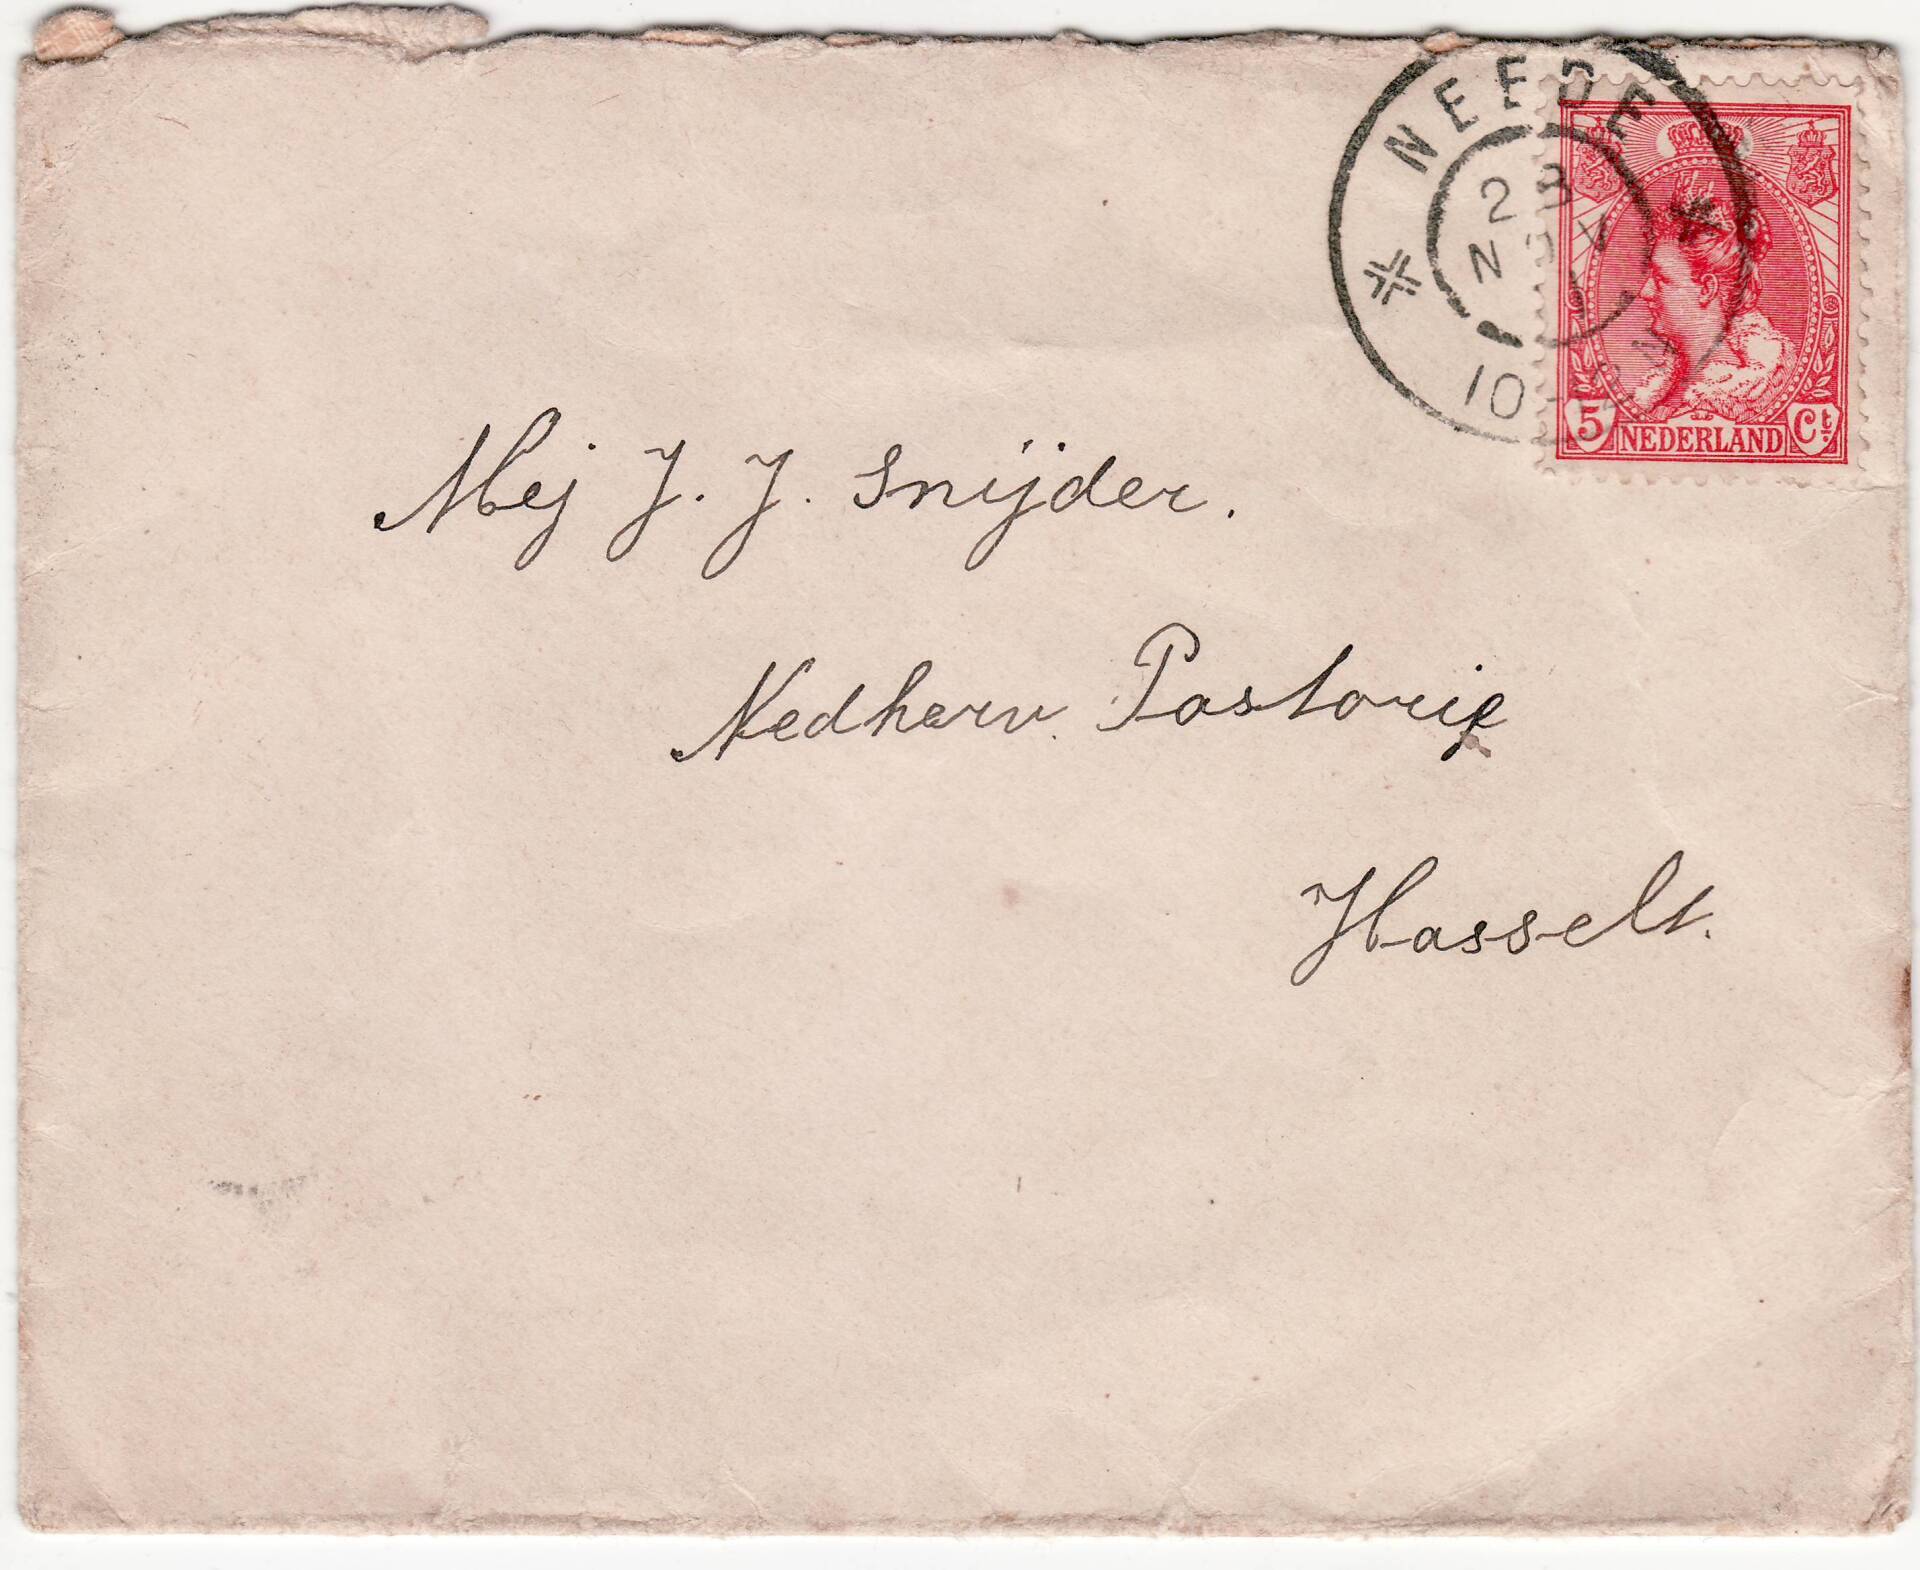 NEEDE
23
NOV
10-12 N
5 NEDERLAND Ct.
Mej J. J. Snijder.
Nedherv. Pastorie
Hasselt.